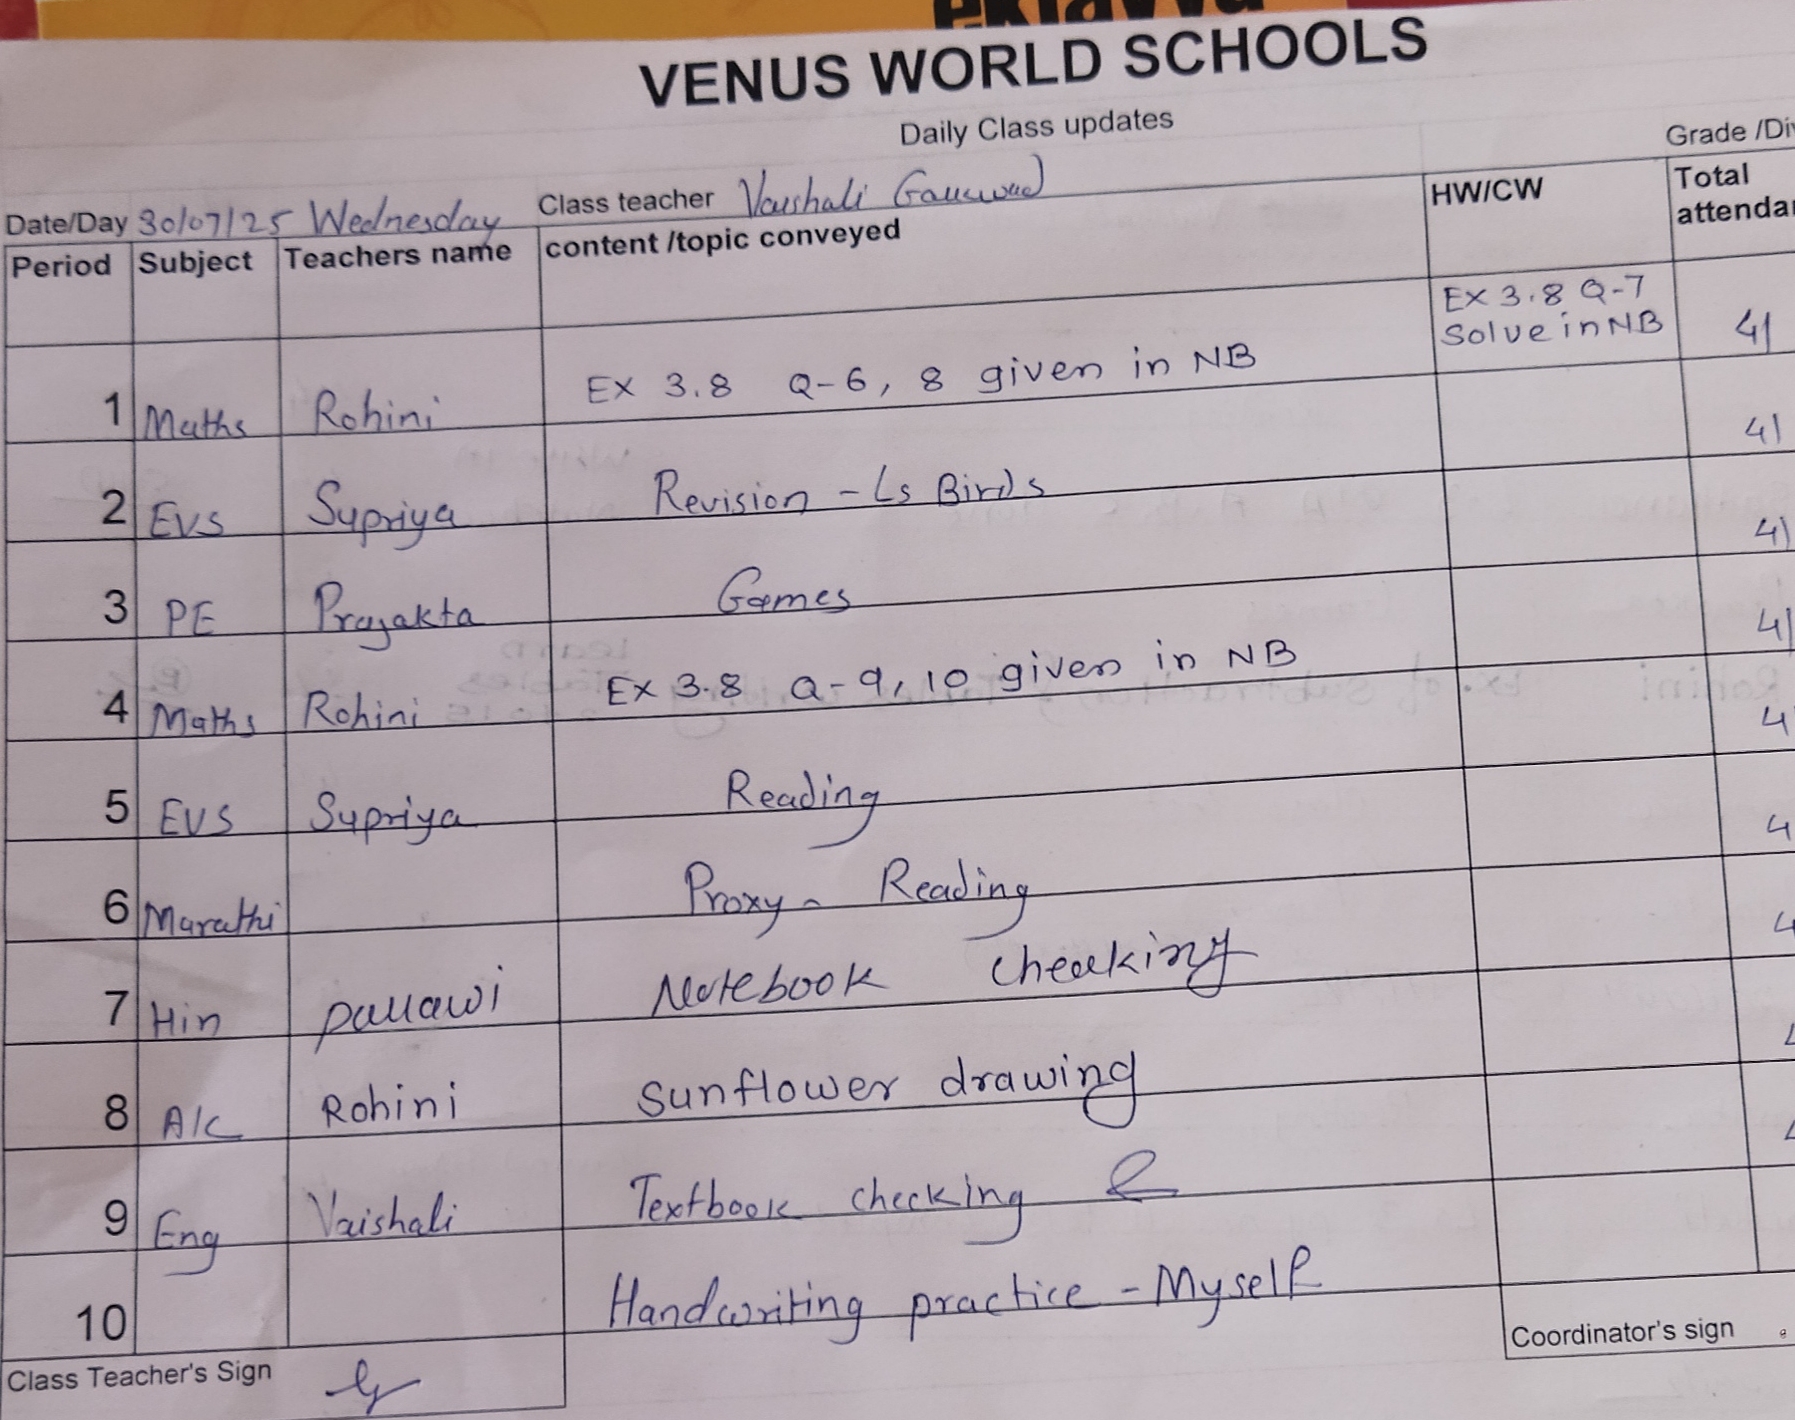 eklavya
VENUS WORLD SCHOOLS
Daily Class updates
Grade /Div
Date/Day 30/07/25 Wednesday Class teacher Vaishali Gaikwad
Period Subject Teachers name content /topic conveyed HW/CW Total attendan
1 Maths Rohini Ex 3.8 Q-6, 8 given in NB Ex 3.8 Q-7 Solve in NB 41
2 EVS Supriya Revision - Ls Birds 41
3 PE Prajakta Games 41
4 Maths Rohini Ex 3.8 Q-9, 10 given in NB 41
5 EVS Supriya Reading 4
6 Marathi Proxy - Reading 4
7 Hin pallawi Notebook checking 4
8 A/C Rohini Sunflower drawing
9 Eng Vaishali Textbook checking &
10 Handwriting practice - Myself
Class Teacher's Sign
Coordinator's sign